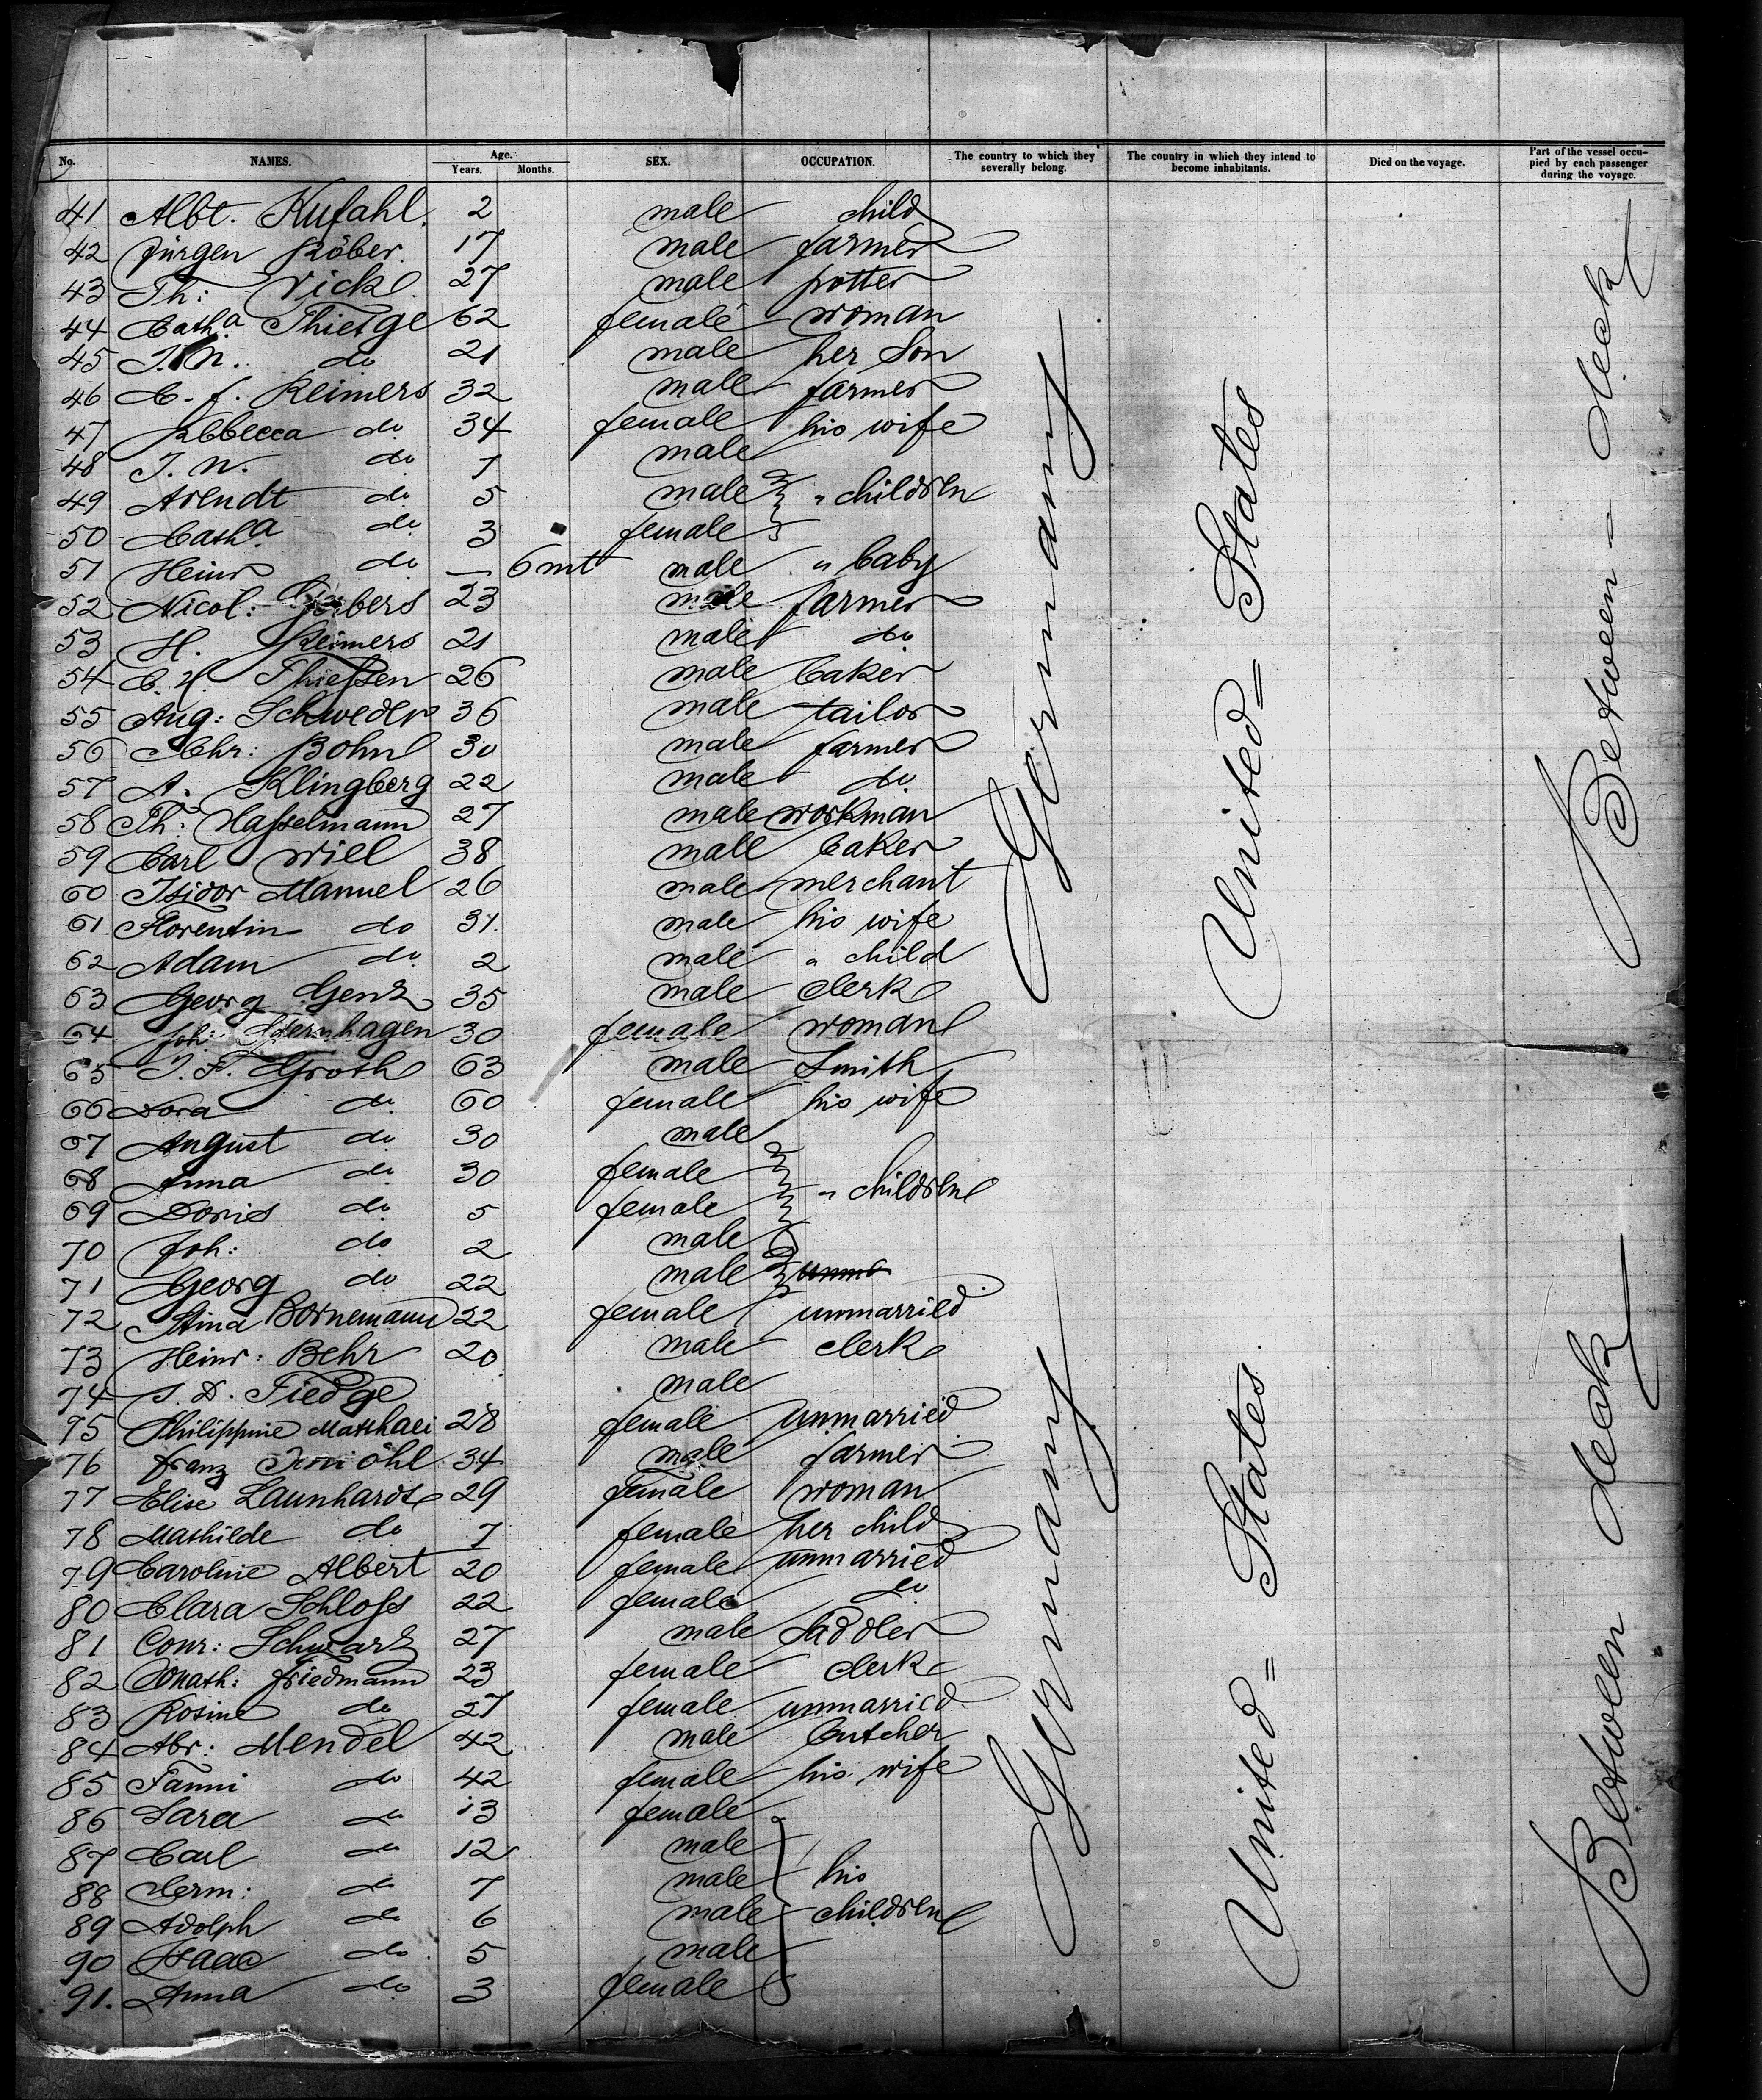 No. NAMES. Age. Years. Months. SEX. OCCUPATION. The country to which they severally belong. The country in which they intend to become inhabitants. Died on the voyage. Part of the vessel occupied by each passenger during the voyage.
41 Albt. Kufahl. 2 male child
42 Jürgen Röber. 17 male farmer
43 Th: Vick. 27 male potter
44 Catha Thietge 62 female woman
45 do 21 male her Son
46 C. f. Reimers 32 male farmer
47 Rebecca do 34 female his wife
48 J. N. do 7 male
49 Arendt do 5 male " children
50 Catha do 3 female
51 Heinr do — 6 mt male " baby
52 Nicol: 23 male farmer
53 H. Reimers 21 male do
54 C. H. Thießen 26 male baker
55 Aug: Schweder 36 male tailor
56 Chr: Bohn 30 male farmer
57 A. Klingberg 22 male do
58 Th: Haßelmann 27 male workman
59 Carl Wiel 38 male baker
60 Isidor Manuel 26 male merchant
61 Florentin do 31. male his wife
62 Adam do 2 male " child
63 Georg Genz 35 male clerk
64 Joh: 30 female woman
65 J. F. Groth 63 male Smith
66 Dora do 60 female his wife
67 August do 30 male
68 Anna do 30 female
69 Doris do 5 female " children
70 Joh: do 2 male
71 Georg do 22 male
72 Stina Bornemann 22 female unmarried
73 Heinr: Behr 20 male clerk
74 J. D. Tiedge male
75 Philippine Matthaei 28 female unmarried
76 Franz 34 male farmer
77 Elise Launhardt 29 female woman
78 Mathilde do 7 female her child
79 Caroline Albert 20 female unmarried
80 Clara Schloß 22 female do
81 Conr: Schwarz 27 male Saddler
82 Jonath: Friedmann 23 female clerk
83 Rosine do 27 female unmarried
84 Abr: Mendel 42 male butcher
85 Fanni do 42 female his wife
86 Sara do 13 female
87 Carl do 12 male
88 Herm: do 7 male his
89 Adolph do 6 male children
90 Isaac do 5 male
91. Anna do 3 female
Germany
United= States
Between= deck
Germany
United= States
Between deck